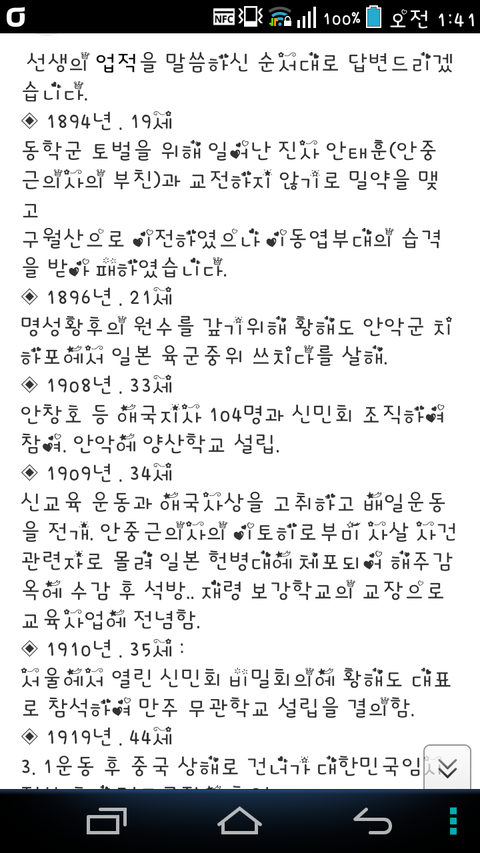 NFC 100% 오전 1:41
선생의 업적을 말씀하신 순서대로 답변드리겠
습니다.
◈ 1894년 . 19세
동학군 토벌을 위해 일어난 진사 안태훈(안중
근의사의 부친)과 교전하지 않기로 밀약을 맺
고
구월산으로 이전하였으나 이동엽부대의 습격
을 받아 패하였습니다.
◈ 1896년 . 21세
명성황후의 원수를 갚기위해 황해도 안악군 치
하포에서 일본 육군중위 쓰치다를 살해.
◈ 1908년 . 33세
안창호 등 애국지사 104명과 신민회 조직하여
참여. 안악에 양산학교 설립.
◈ 1909년 . 34세
신교육 운동과 애국사상을 고취하고 배일운동
을 전개. 안중근의사의 이토히로부미 사살 사건
관련자로 몰려 일본 헌병대에 체포되어 해주감
옥에 수감 후 석방.. 재령 보강학교의 교장으로
교육사업에 전념함.
◈ 1910년 . 35세 :
서울에서 열린 신민회 비밀회의에 황해도 대표
로 참석하여 만주 무관학교 설립을 결의함.
◈ 1919년 . 44세
3. 1운동 후 중국 상해로 건너가 대한민국임시